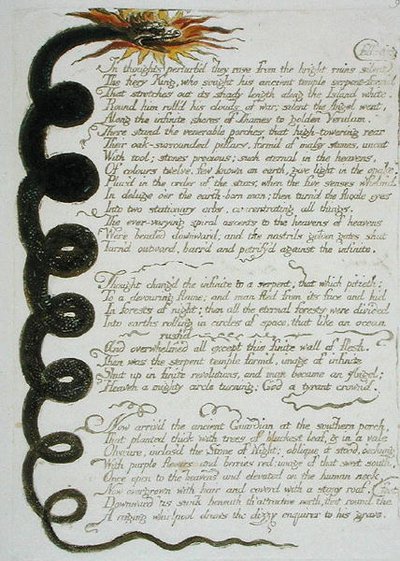 In thoughts perturb'd they rose from the bright ruins silent
The fiery King, who sought his ancient temple serpent-form'd
That stretches out its shady length along the Island white.
Round him roll'd his clouds of war; silent the Angel went,
Along the infinite shores of Thames to golden Verulam.
There stand the venerable porches that high-towering rear
Their oak-surrounded pillars, form'd of massy stones, uncut
With tool; stones precious; such eternal in the heavens,
Of colours twelve, few known on earth, give light in the opake,
Plac'd in the order of the stars, when the five senses whelm'd
In deluge o'er the earth-born man; then turn'd the fluxile eyes
Into two stationary orbs, concentrating all things.
The ever-varying spiral ascents to the heavens of heavens
Were bended downward; and the nostrils golden gates shut
Turn'd outward, barr'd and petrify'd against the infinite.
Thought chang'd the infinite to a serpent; that which pitieth:
To a devouring flame; and man fled from its face and hid
In forests of night; then all the eternal forests were divided
Into earths rolling in circles of space, that like an ocean
rush'd
And overwhelmed all except this finite wall of flesh.
Then was the serpent temple form'd, image of infinite
Shut up in finite revolutions, and man became an Angel;
Heaven a mighty circle turning; God a tyrant crown'd.
Now arriv'd the ancient Guardian at the southern porch,
That planted thick with trees of blackest leaf, & in a vale
Obscure, inclos'd the Stone of Night; oblique it stood, o'erhung
With purple flowers and berries red; image of that sweet south,
Once open to the heavens and elevated on the human neck,
Now overgrown with hair and coverd with a stony roof,
Downward 'tis sunk beneath th' attractive north, that round the
A raging whirlpool draws the dizzy enquirer to his grave: